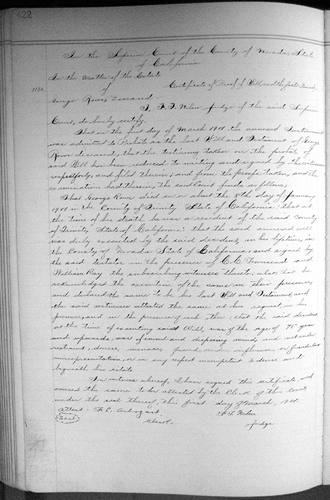 422
In the Superior Court of the County of Nevada, State
of California
In the Matter of the Estate
of
Certificate of Proof of Will, and the facts found
George Rowe, Deceased.
I, F. T. Nilon Judge of the said Superior
Court, do hereby certify:
That on the first day of March 1901, the annexed Instrument
was admitted to Probate as the last Will and Testament of George
Rowe deceased, that the testimony taken on the proofs of
said Will has been reduced to writing and signed by the witnesses
respectfully, and filed therein; and from the proofs taken, and the
examination had therein, the said Court finds, as follows:
That George Rowe died on or about the day of January
1901 in the County of Trinity State of California; that at
the time of his death he was a resident of the said County
of Trinity State of California: that the said annexed will
was duly executed by the said decedent, in his lifetime, in
the County of Nevada State of California and signed by
the said testator in the presence of and
William Ray the subscribing witnesses thereto; also, that he
acknowledged the execution of the same in their presence,
and declared the same to be his last Will and Testament, and
the said witnesses attested the same at his request in his
presence, and in the presence of each other; that the said decedent
at the time of executing said Will, was of the age of years
and upwards, was of sound and disposing mind, and not under
restraint, duress, menace, fraud, undue influence, or fraudulent
misrepresentation, or in any respect incompetent to devise and
bequeath his estate.
In witness whereof, I have signed this certificate, and
caused the same to be attested by the Clerk of the Court
under the seal thereof, this first day of March, 1901.
Attest: F. L. Arbogast,
F. T. Nilon
Seal
Clerk.
Judge